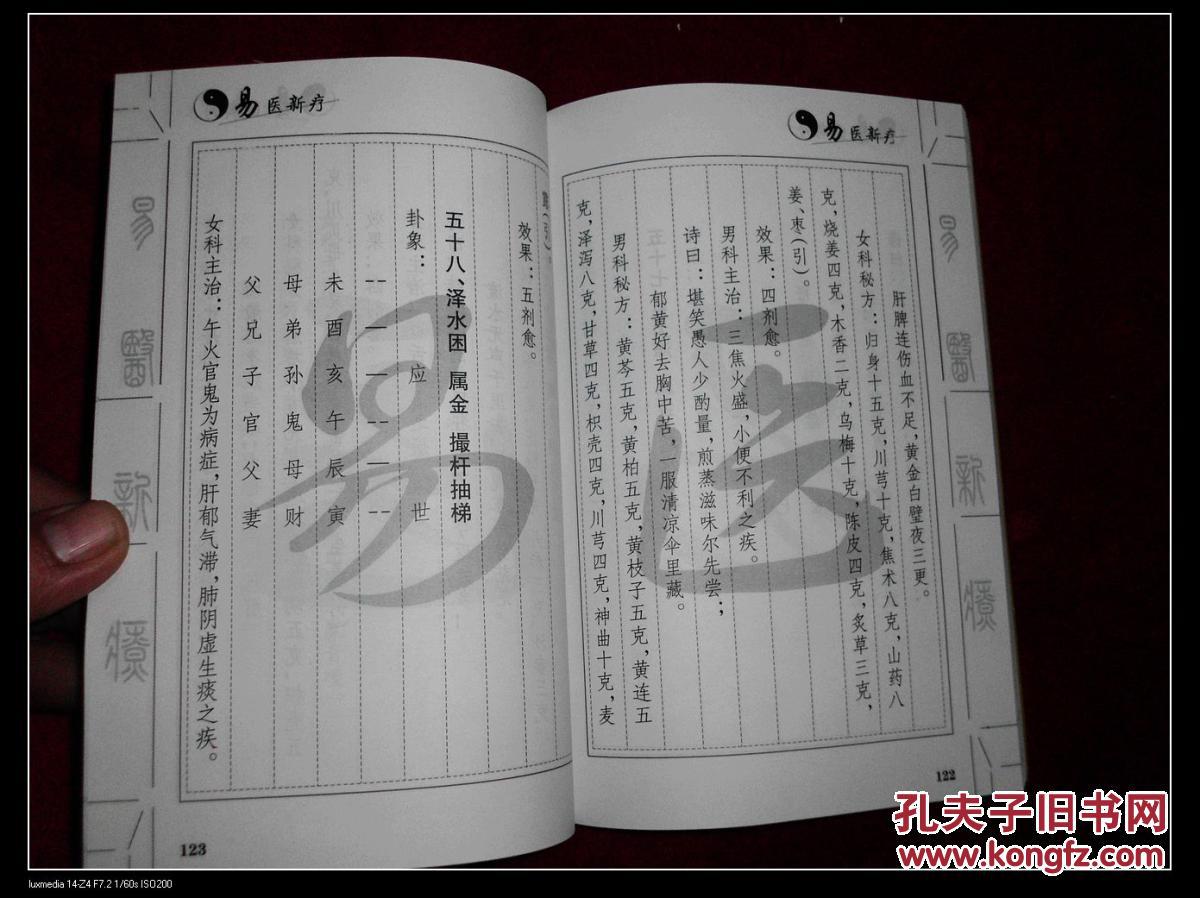 易医新疗
肝脾连伤血不足，黄金白璧夜三更。
女科秘方：归身十五克，川芎十克，焦术八克，山药八
克，烧姜四克，木香二克，乌梅十克，陈皮四克，炙草三克，
姜、枣（引）。
效果：四剂愈。
男科主治：三焦火盛，小便不利之疾。
诗曰：堪笑愚人少酌量，煎蒸滋味尔先尝；
郁黄好去胸中苦，一服清凉伞里藏。
男科秘方：黄芩五克，黄柏五克，黄枝子五克，黄连五
克，泽泻八克，甘草四克，枳壳四克，川芎四克，神曲十克，麦
易醫新療
122
易医
易医新疗
（引）。
效果：五剂愈。
五十八、泽水困 属金 撮杆抽梯
卦象：
应 世
未 酉 亥 午 辰 寅
母 弟 孙 鬼 母 财
父 兄 子 官 父 妻
女科主治：午火官鬼为病症，肝郁气滞，肺阴虚生痰之疾。
易醫新療
123
孔夫子旧书网
www.kongfz.com
luxmedia 14-Z4 F7.2 1/60s ISO200